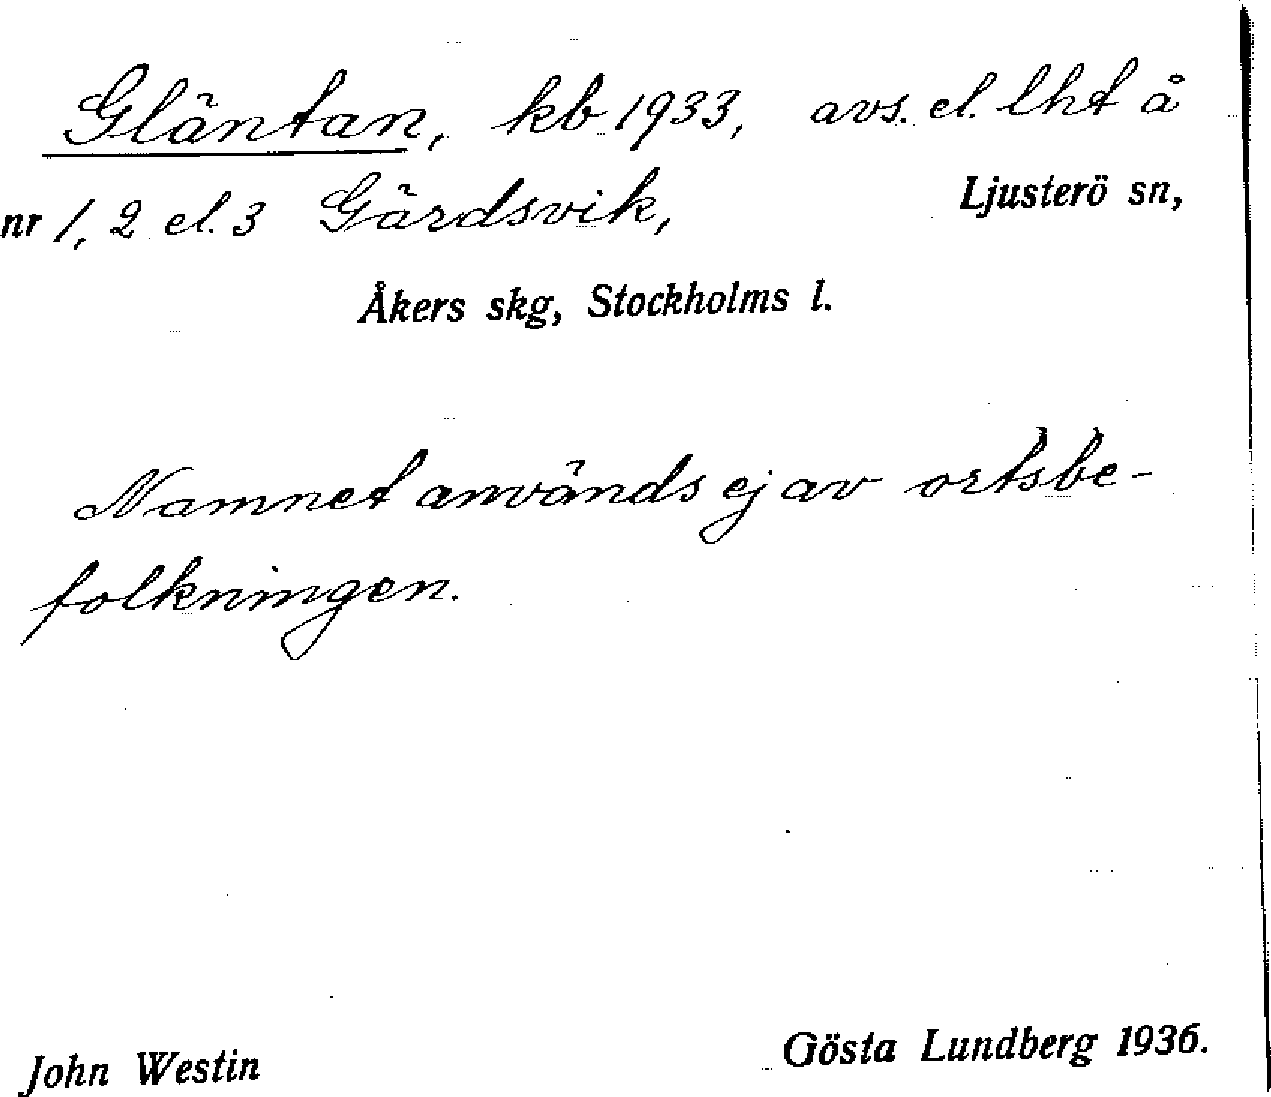 Gläntan, kb 1933, avs. el. lht å
nr 1, 2 el. 3 Gärdsvik, Ljusterö sn,
Åkers skg, Stockholms l.
Namnet används ej av ortsbe-
folkningen.
John Westin Gösta Lundberg 1936.